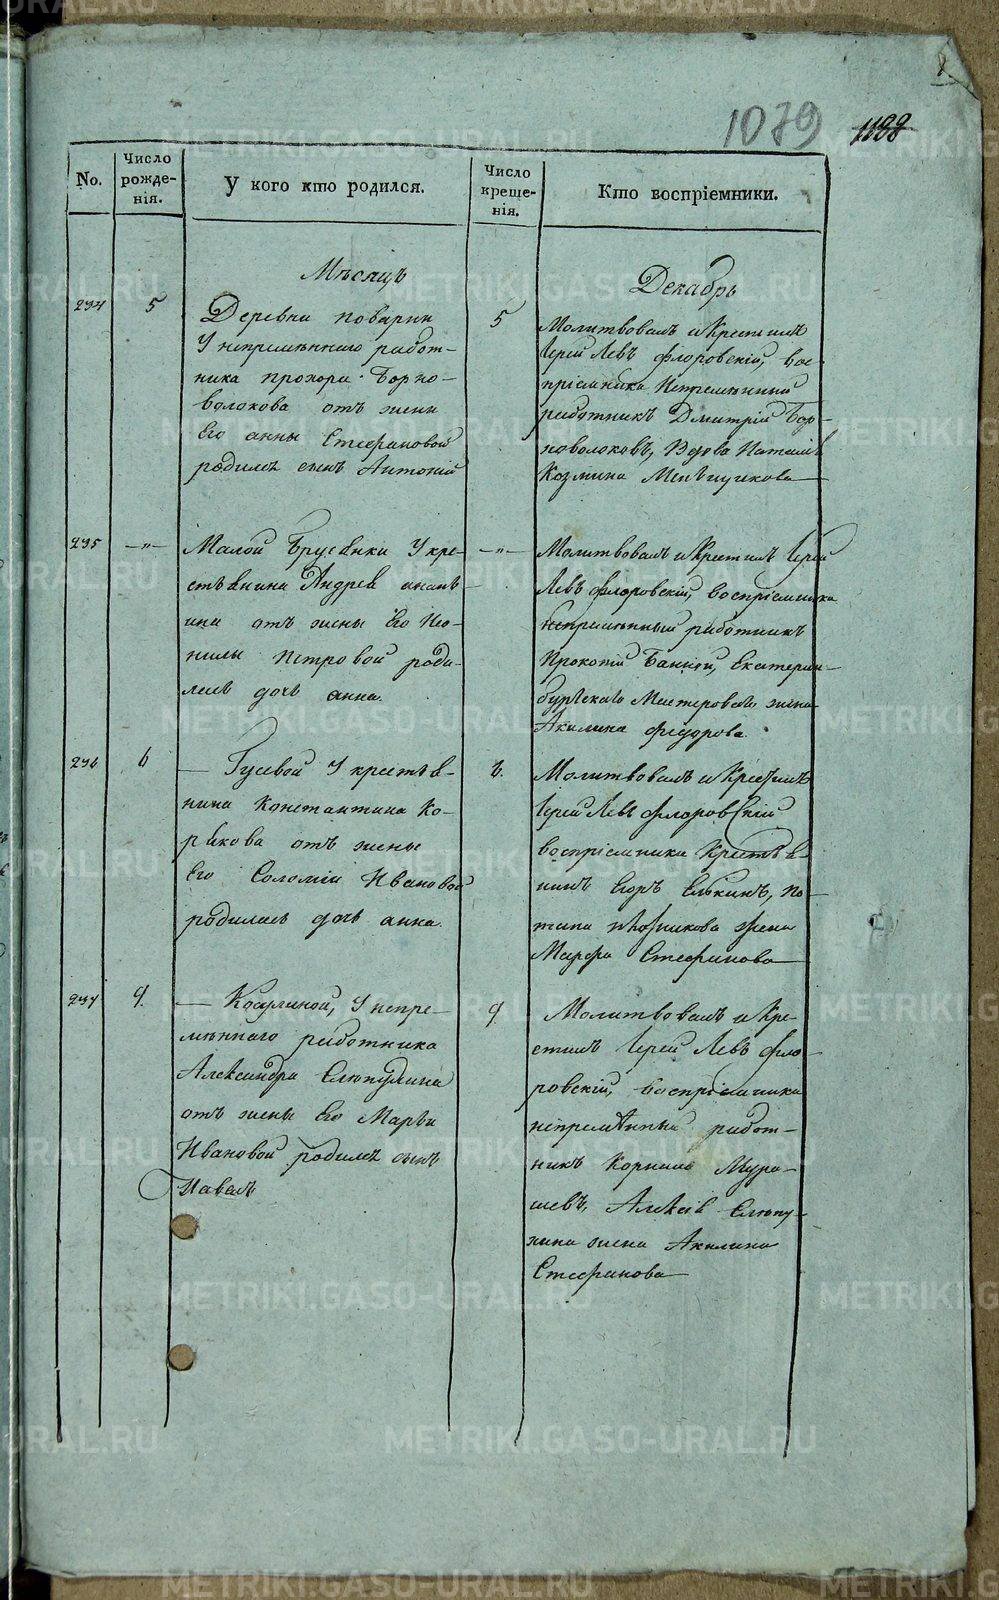 1079 1198
No.
Число рожде-
нія.
У кого кто родился.
Число креще-
нія.
Кто воспріемники.
Мѣсяцъ
Декабрь
234
5
Деревни поварни
У непремѣннаго работ-
ника прохора Борно-
волокова отъ жены
Его анны Стефановой
родился сынъ Антоній
5
Молитвовалъ и Крестилъ
Іерей Левъ флоровскій, вос-
пріемника Непремѣнный
работникъ Дмитрій Бор-
новолоковъ, Вдова Наталья
Козмина Меньщикова
235
—"—
Малой Брусянки У кре-
стьянина Андрея анань-
ина отъ жены Его Не-
нилы Петровой роди-
лась дочь анна.
—"—
Молитвовалъ и Крестилъ Іерей
Левъ флоровскій, воспріемника
непремѣнный работникъ
Прокопій Екатерин-
бургскаго Мастероваго жена
Акилина федорова.
236
6
— Гусевой У крестья-
нина Константина Ко-
рякова отъ жены
Его Соломіи Ивановой
родилась дочь анна.
6.
Молитвовалъ и Крестилъ
Іерей Левъ флоровскій
воспріемники Крестья-
нинъ Егоръ Елькинъ, по-
тапа плотникова жена
Марфа Стефанова
237
9.
— Косулиной, У непре-
мѣннаго работника
Александра Слепухина
отъ жены Его Марьи
Ивановой родился сынъ
Павелъ
9.
Молитвовалъ и Кре-
стилъ Іерей Левъ фло-
ровскій, воспріемники
непремѣнный работ-
никъ Корнило Мура-
шевъ, Алексѣя Слепу-
хина жена Акилина
Стефанова